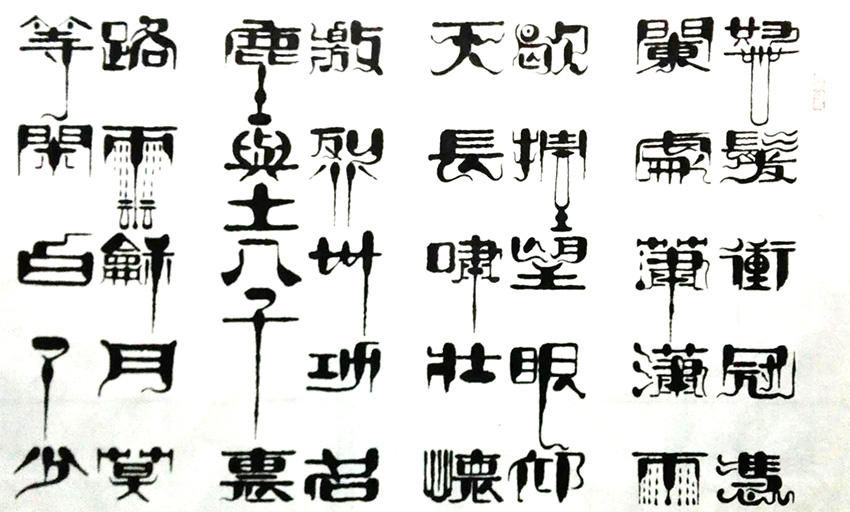 怒髮衝冠憑
闌處蕭瀟雨
歇抬望眼仰
天長嘯壯懷
激烈卅功名
塵與土八千裏
路雲龢月莫
等閑白了少